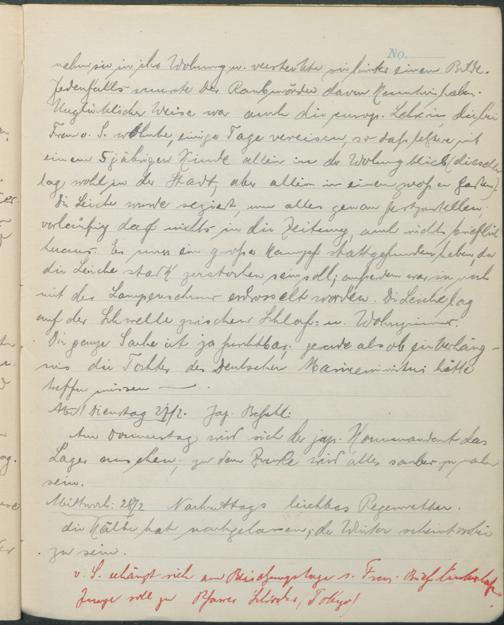 No.
nahm sie in ihre Wohnung u. versteckte sie hinter einem Bilde.
Jedenfalls musste der Raubmörder davon Kenntnis haben.
Unglücklicher Weise war auch die Lehrerin die bei
Frau v. S. wohnte, einige Tage verreisen, so dass letztere mit
einem 5jährigen Kinde allein in der Wohnung blieb (dieselbe
lag wohl in der Stadt, aber allein in einem großen Garten).
Die Leiche wurde seziert, um alles genau festzustellen,
vorläufig darf nichts in die Zeitung, auch nichts
heraus. Es muss ein großer Kampf stattgefunden haben, da
die Leiche stark zerstochen sein soll; außerdem war sie noch
mit der Lampenschnur erdrosselt worden. Die Leiche lag
auf der Schwelle zwischen Schlaf- u. Wohnzimmer.
Die ganze Sache ist ja furchtbar, gerade als ob ein Verhäng-
nis die Tochter des Deutschen Marineministers hätte
treffen müssen —
Dienstag 27/2. Jap. Befehl:
Am Donnerstag wird sich der jap. Kommandant das
Lager ansehen, zu dem Zwecke wird alles sauber zu
sein.
Mittwoch: 28/2 Nachmittags leichtes Regenwetter.
die Kälte hat nachgelassen, der Winter scheint vorbei
zu sein.
v. S. erhängt sich am Beisetzungstage s. Frau.
Junge soll zu Pfarrer Schröder, Tokyo!